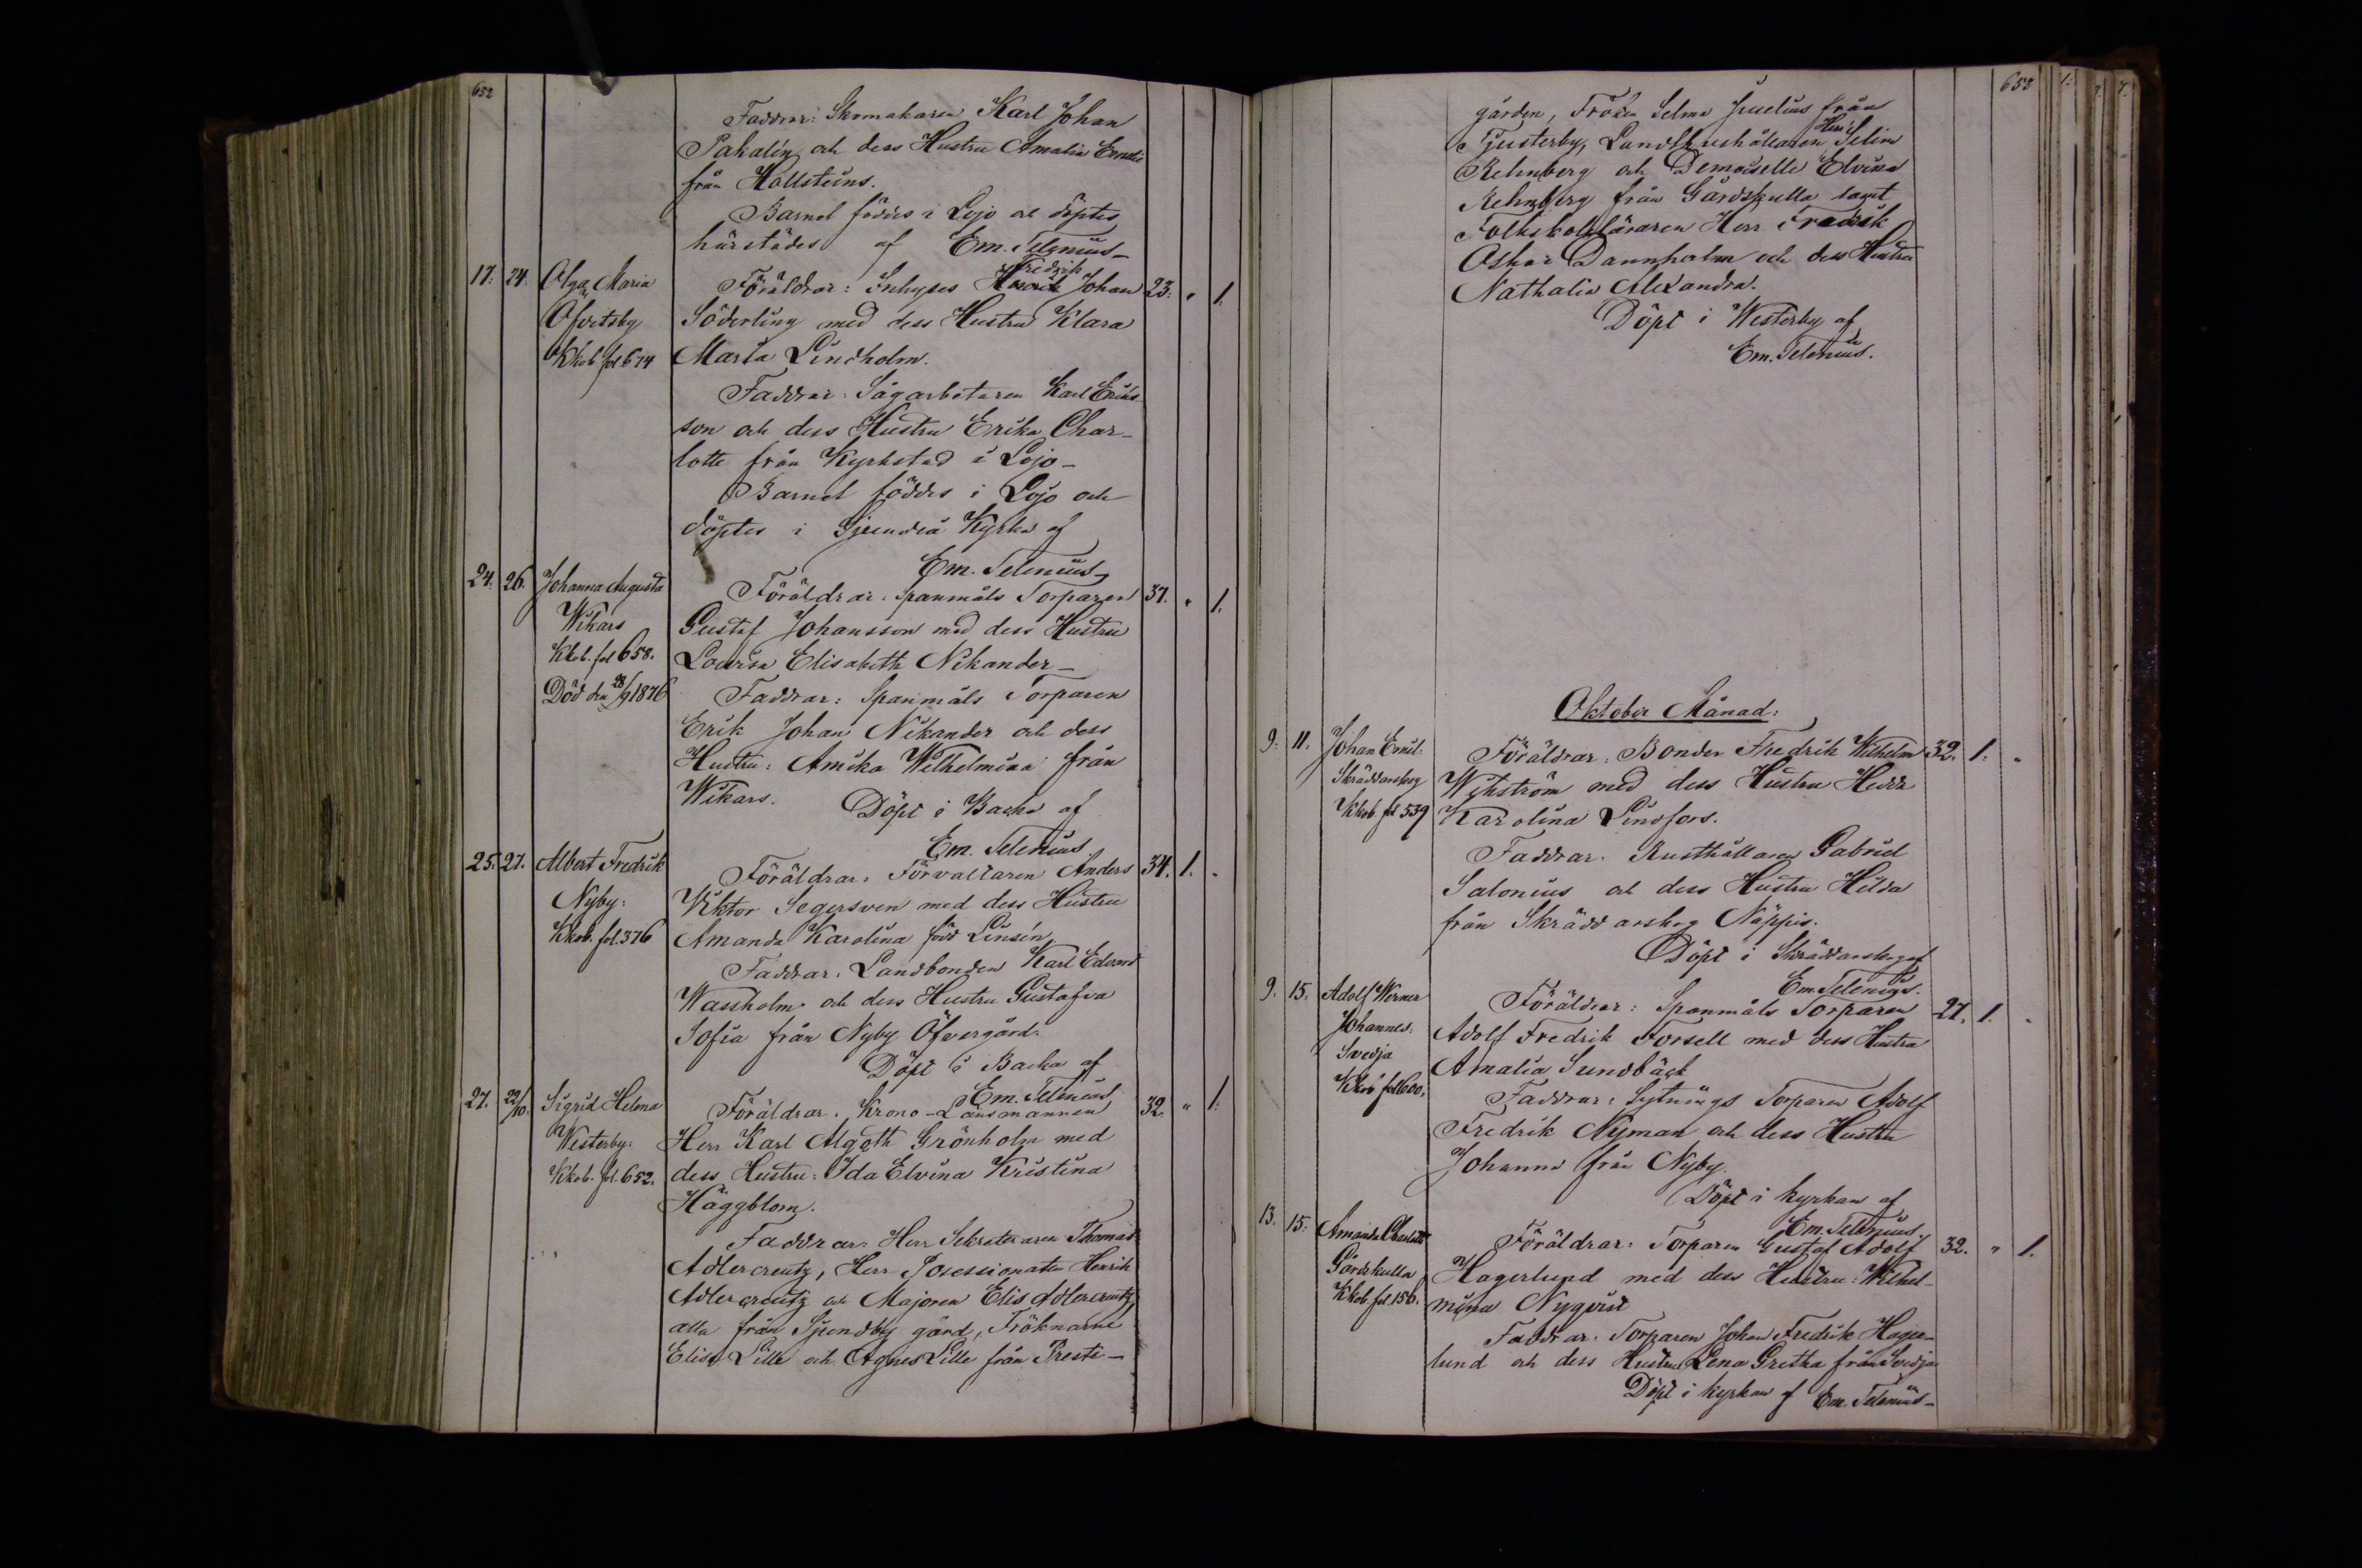 652
Faddrar: Skomakaren Karl Johan
Pakalén och dess Hustru Amalia
från Hollsteins.
Barnet föddes i Lojo och döptes
härstädes af Em. Telenius
17. 24. Olga Maria Föräldrar: Inhyses Fredrik Johan 23. " 1.
Öfvitsby Söderling med dess Hustru Klara
Kkob. fol 674 Maria Lindholm.
Faddrar: Sågarbetaren Karl Eriks
son och dess Hustru Erika Char-
lotta från Kyrkstad i Lojo
Barnet föddes i Lojo och
döptes i Sjundeå Kyrka af
Em. Telenius
24. 26. Johanna Augusta Föräldrar: Spanmåls Torparen 37. " 1.
Wikars Gustaf Johansson med dess Hustru
Kkob. fol 658. Lovisa Elisabeth Nikander
Död den 28/9 1876 Faddrar: Spanmåls Torparen
Erik Johan Nikander och dess
Hustru: Amika Wilhelmina från
Wikars. Döpt i Backa af
Em. Telenius
25. 27. Albert Fredrik Föräldrar: Förvaltaren Anders 34. 1. "
Nyby: Viktor Segersven med dess Hustru
Kkob. fol. 376 Amanda Karolina född Linsén
Faddrar: Landbonden Karl Edvard
Wassholm och dess Hustru Gustafva
Sofia från Nyby Öfvergård.
Döpt i Backa af
Em. Telenius
27. 22/10. Sigrid Helena Föräldrar: Krono-Länsmannen 32. " 1.
Westerby: Herr Karl Algoth Grönholm med
Kkob. fol. 652. dess Hustru: Ida Elvina Kristina
Häggblom.
Faddrar: Herr Sekreteraren Thomas
Adlercreutz, Herr Possessionaten Henrik
Adlercreutz och Majoren Elis Adlercreutz
alla från Sjundby gård, Fröknarne
Elise Lille och Agnes Lille från Preste-
653
gården, Fröken Selma från
Tjusterby, Landthushållaren Herr Selim
Rehnberg och Demoiselle Elvina
Rehnberg från Gårdskulla samt
Folkskolläraren Herr Fredrik
Oskar Dannholm och dess Hustru
Nathalia Alexandra.
Döpt i Westerby af
Em. Telenius.
Oktober Månad:
9. 11. Johan Emil Föräldrar: Bonden Fredrik Wilhelm 32. 1. "
Skräddarskog Wikström med dess Hustru Hedda
Kkob. fol 539 Karolina Lindfors.
Faddrar: Rusthållaren Gabriel
Salonius och dess Hustru Hilda
från Skräddarskog Näppis.
Döpt i Skräddarskog af
Em. Telenius.
9. 15. Adolf Werner Föräldrar: Spanmåls Torparen 27. 1. "
Johannes: Adolf Fredrik Forsell med dess Hustru
Svedja Amalia Sundbäck
Kkob fol 600. Faddrar: Sytnings Torparen Adolf
Fredrik Nyman och dess Hustru
Johanna från Nyby.
Döpt i kyrkan af
Em. Telenius.
13. 15. Amanda Charlotta Föräldrar: Torparen Gustaf Adolf 32. " 1.
Gårdskulla Hagerlund med dess Hustru: Wilhel-
Kkob. fol. 156. mina Nyqvist
Faddrar: Torparen Johan Fredrik Hager-
lund och dess Hustru Lena Gretha från Svidja
Döpt i kyrkan af Em. Telenius